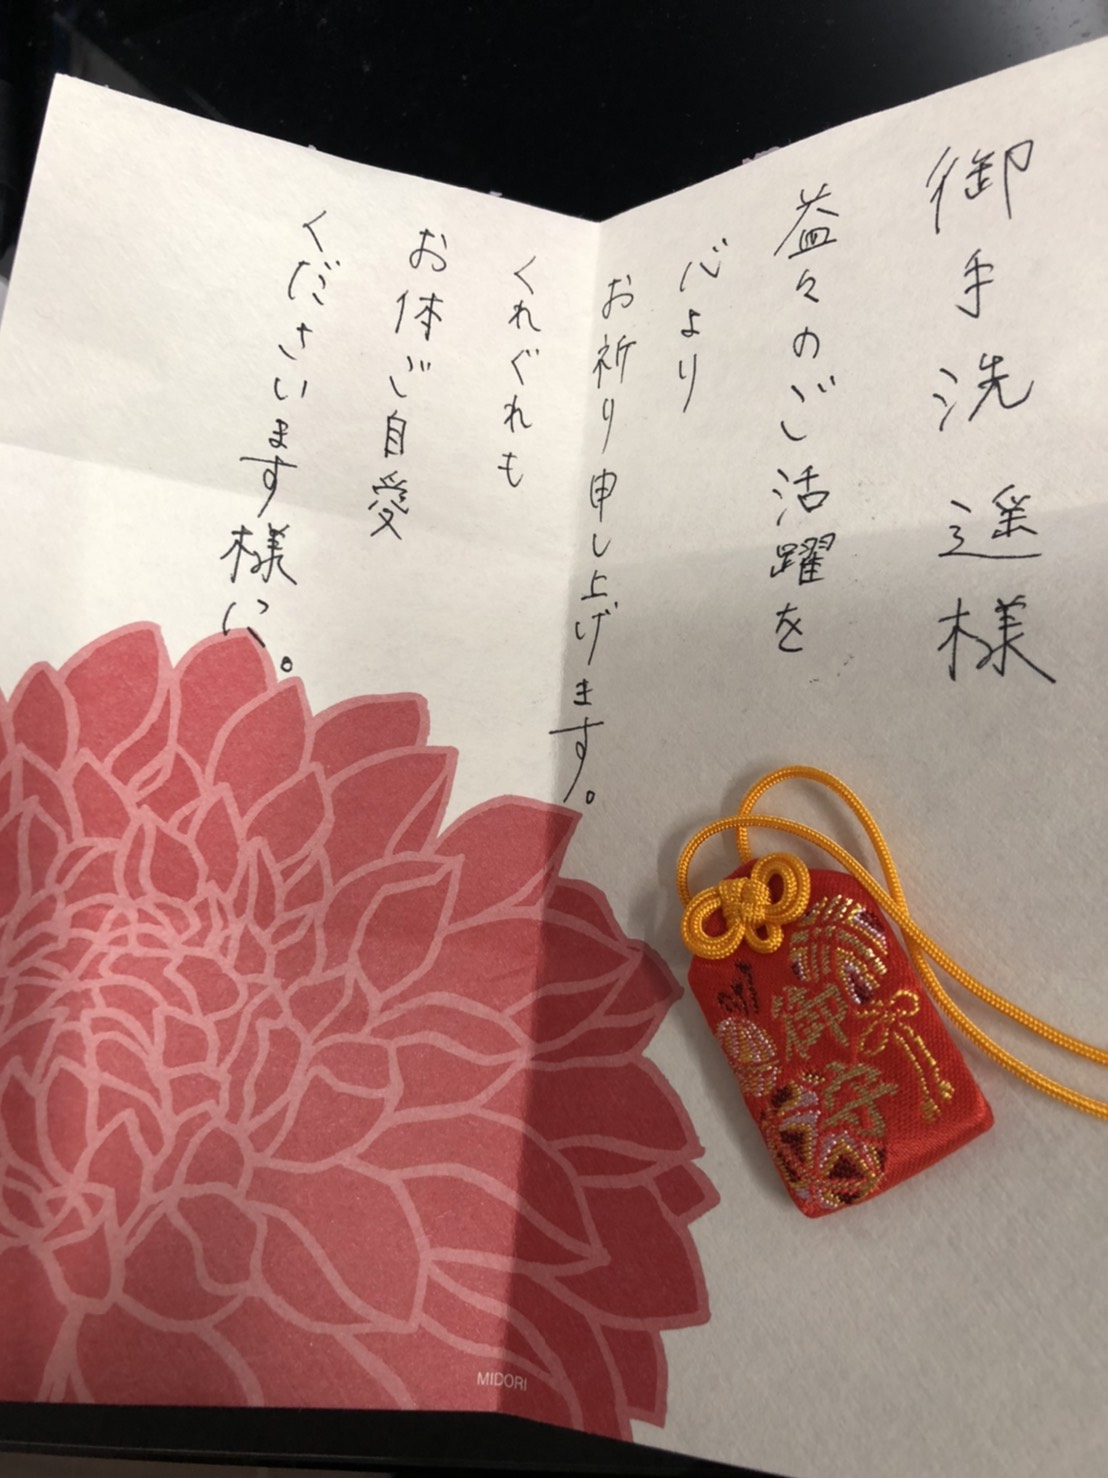 御手洗遥様
益々のご活躍を
心より
お祈り申し上げます。
くれぐれも
お体ご自愛
くださいます様に。
御守
MIDORI